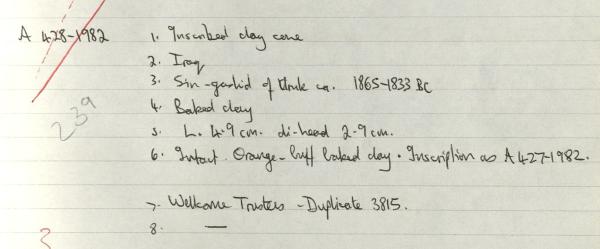 A 428-1982 1. Inscribed clay cone
2. Iraq
3. Sin-gashid of Uruk ca. 1865-1833 BC
4. Baked clay
239
5. L. 4.9 cm. di-head 2.9 cm.
6. Intact. Orange-buff baked clay. Inscription as A 427-1982.
7. Wellcome Trustees - Duplicate 3815.
8. —